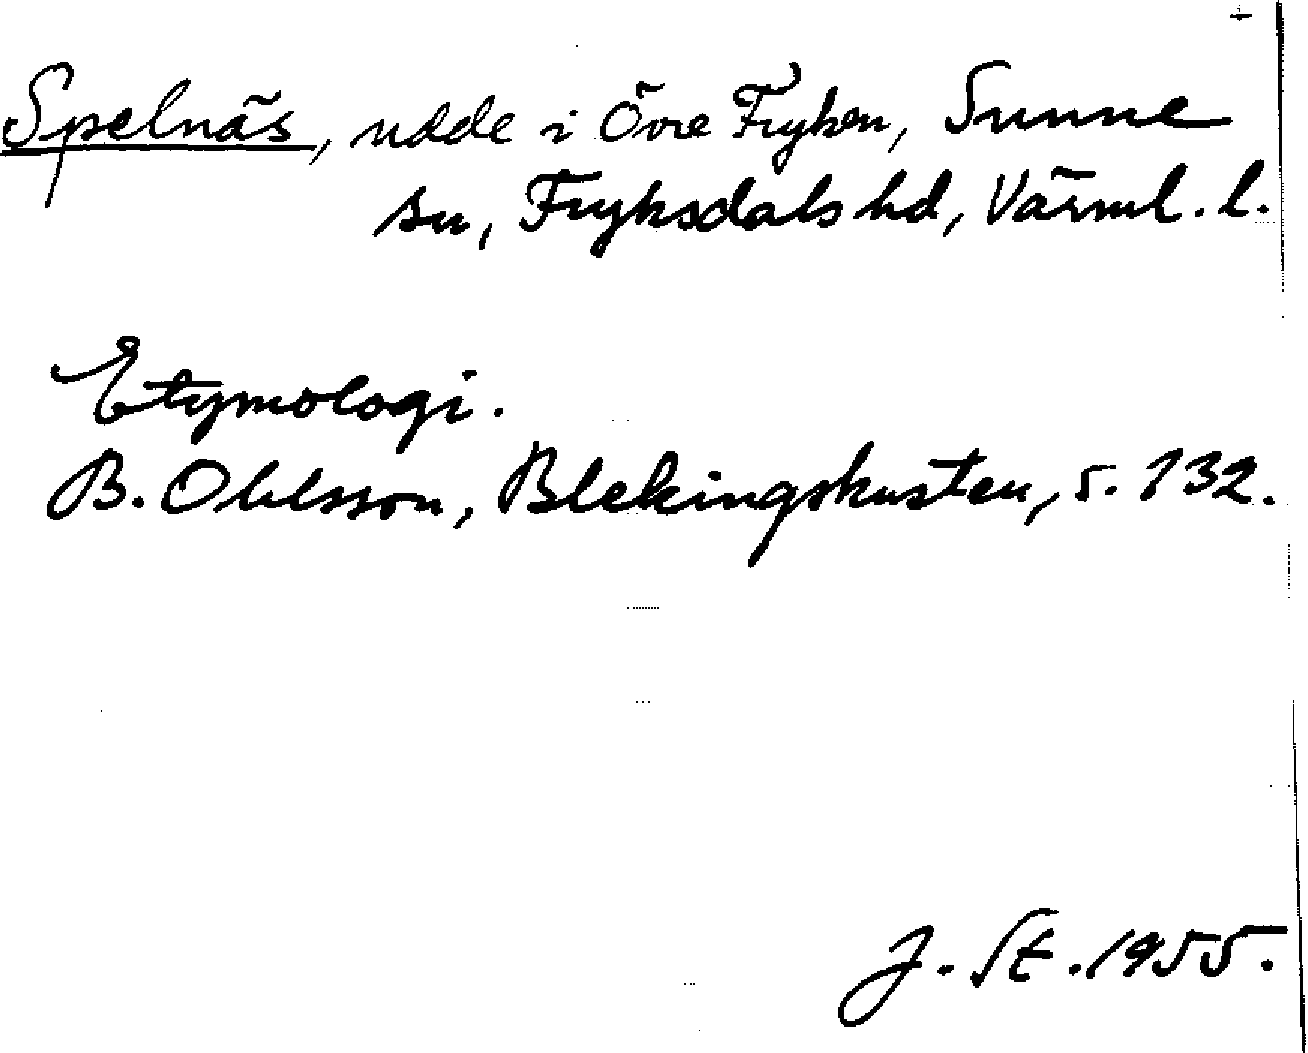 Spelnäs, udde i Övre Fryken, Sunne
sn, Fryksdals hd, Värml. l.
Etymologi.
B. Ohlsson, Blekingskusten, s. 132.
J. St. 1955.